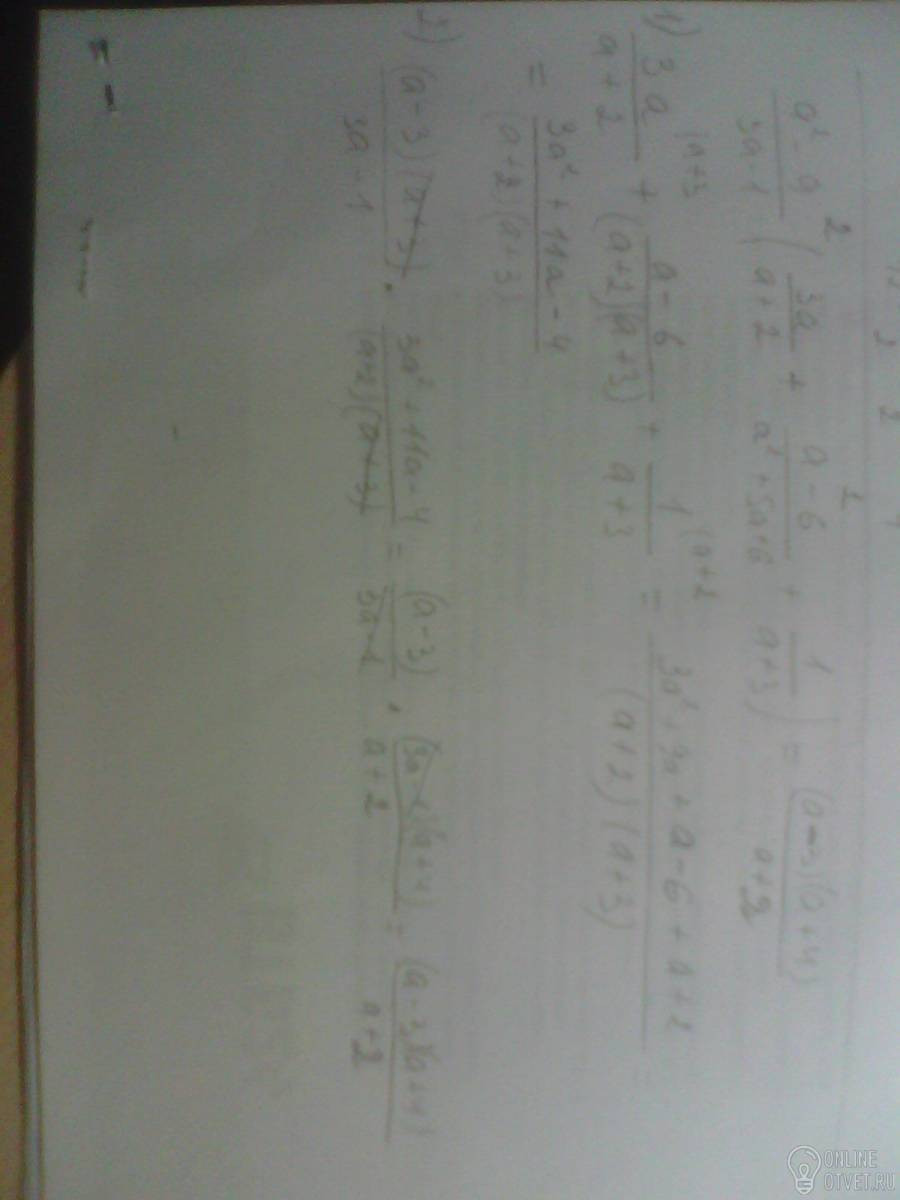 a² - 9 / 3a - 1 ( 3a / a + 2 + a - 6 / a² + 5a + 6 + 1 / a + 3 ) = (a - 3)(a + 4) / a + 2
1) 3a / a + 2 + a - 6 / (a + 2)(a + 3) + 1 / a + 3 = 3a² + 9a + a - 6 + a + 2 / (a + 2)(a + 3)
= 3a² + 11a - 4 / (a + 2)(a + 3)
2) (a - 3)(a + 3) / 3a - 1 · 3a² + 11a - 4 / (a + 2)(a + 3) = (a - 3) / 3a - 1 · (3a - 1)(a + 4) / a + 2 = (a - 3)(a + 4) / a + 2
ONLINE
OTVET.RU